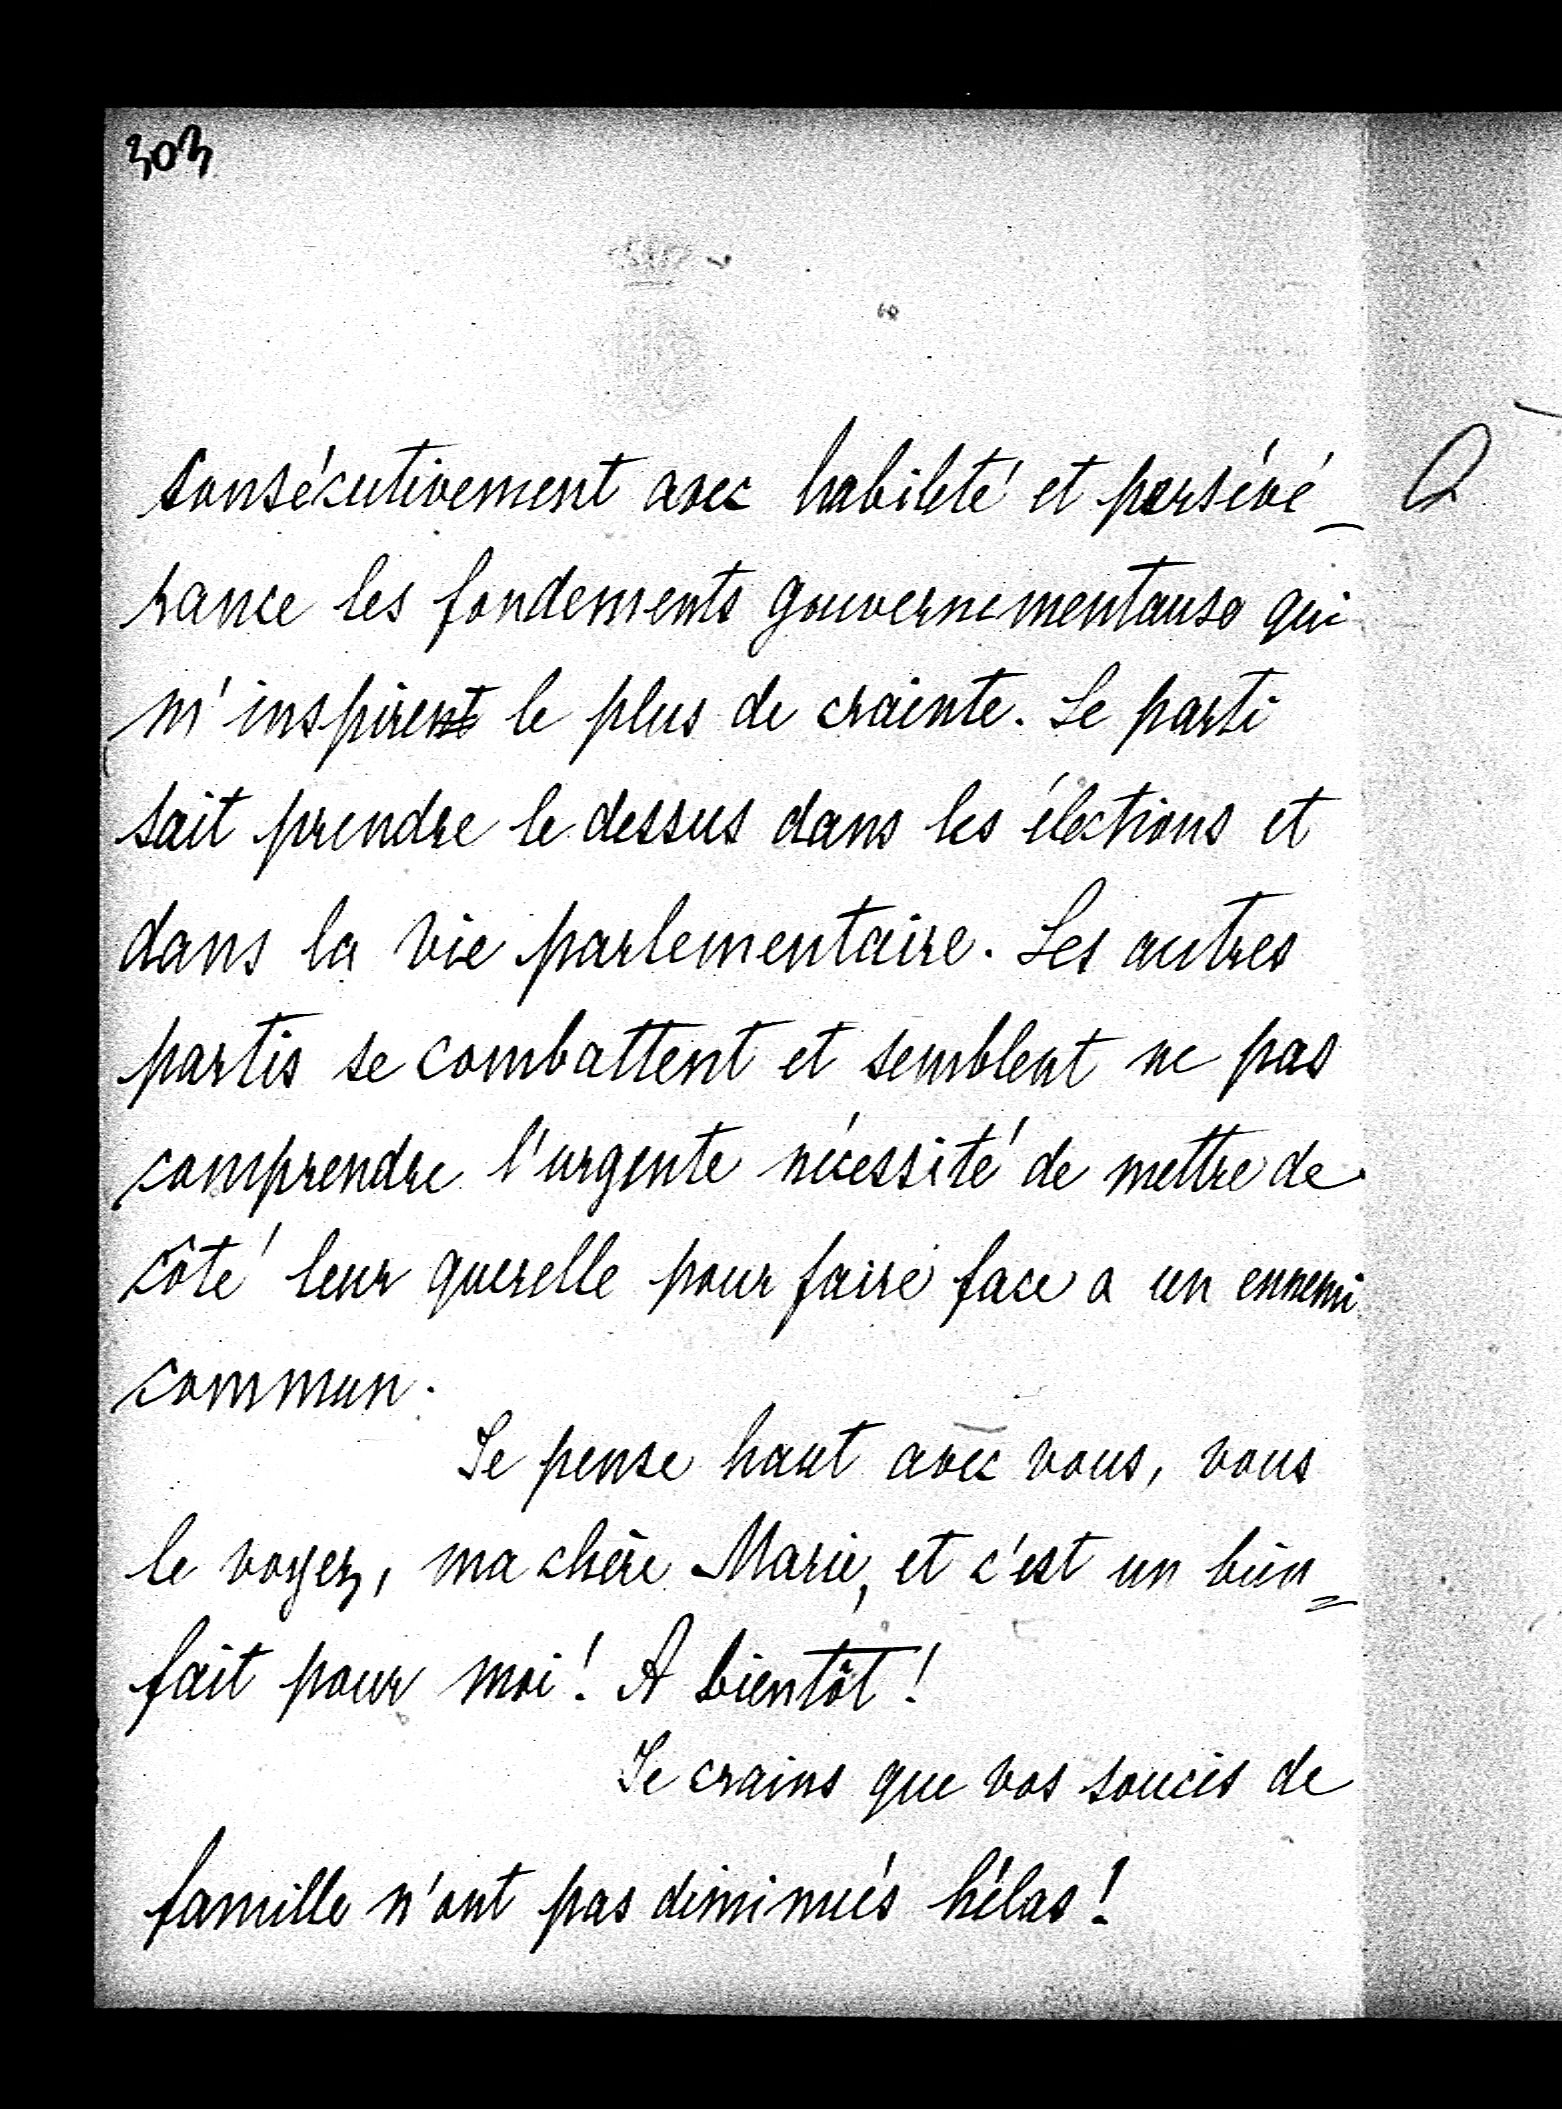 303
consécutivement avec habileté et persévé_
rance les fondements gouvernementaux qui
m'inspirent le plus de crainte. Le parti
sait prendre le dessus dans les élections et
dans la vie parlementaire. Les autres
partis se combattent et semblent ne pas
comprendre l'urgente nécessité de mettre de
côté leur querelle pour faire face a un ennemi
commun.
Je pense haut avec vous, vous
le voyez, ma chère Marie, et c'est un bien=
fait pour moi! A bientôt!
Je crains que vos soucis de
famille n'ont pas diminués hélas!